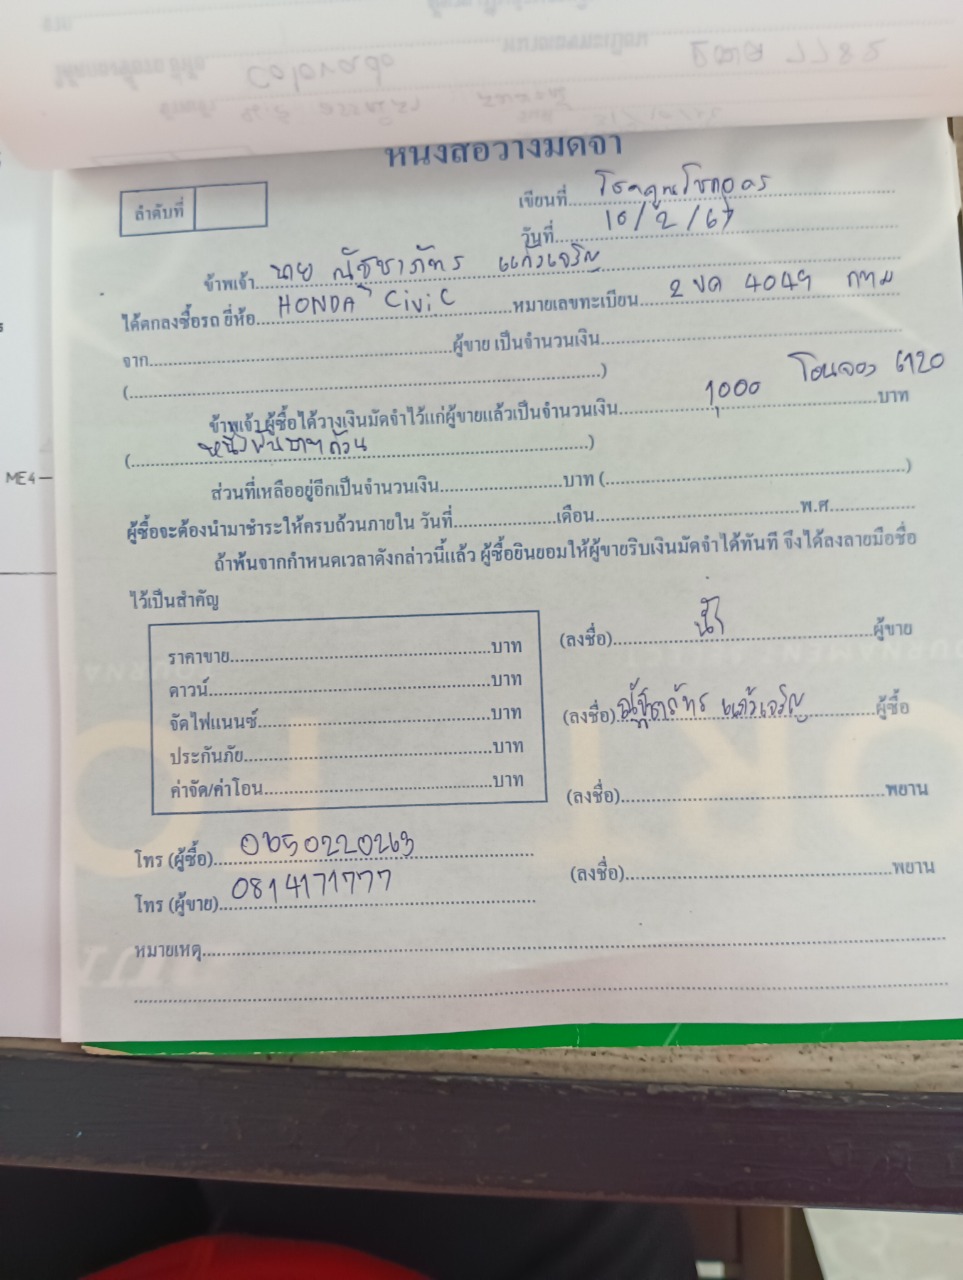 หนังสือวางมัดจำ
ลำดับที่
เขียนที่
วันที่ 16/2/67
ข้าพเจ้า นาย ณัชชาภัทร แก้วเจริญ
ได้ตกลงซื้อรถ ยี่ห้อ HONDA Civic หมายเลขทะเบียน 2 ขค 4049 กทม
จาก ผู้ขาย เป็นจำนวนเงิน
( )
ข้าพเจ้า ผู้ซื้อได้วางเงินมัดจำไว้แก่ผู้ขายแล้วเป็นจำนวนเงิน 1,000 โอนจอง 6120 บาท
(หนึ่งพันบาทถ้วน)
ส่วนที่เหลืออยู่อีกเป็นจำนวนเงิน บาท ( )
ผู้ซื้อจะต้องนำมาชำระให้ครบถ้วนภายใน วันที่ เดือน พ.ศ.
ถ้าพ้นจากกำหนดเวลาดังกล่าวนี้แล้ว ผู้ซื้อยินยอมให้ผู้ขายริบเงินมัดจำได้ทันที จึงได้ลงลายมือชื่อ
ไว้เป็นสำคัญ
ราคาขาย บาท
ดาวน์ บาท
จัดไฟแนนซ์ บาท
ประกันภัย บาท
ค่าจัด/ค่าโอน บาท
(ลงชื่อ) ผู้ขาย
(ลงชื่อ) ณัชชาภัทร แก้วเจริญ ผู้ซื้อ
(ลงชื่อ) พยาน
(ลงชื่อ) พยาน
โทร (ผู้ซื้อ)
โทร (ผู้ขาย) 0814171777
หมายเหตุ
ME4